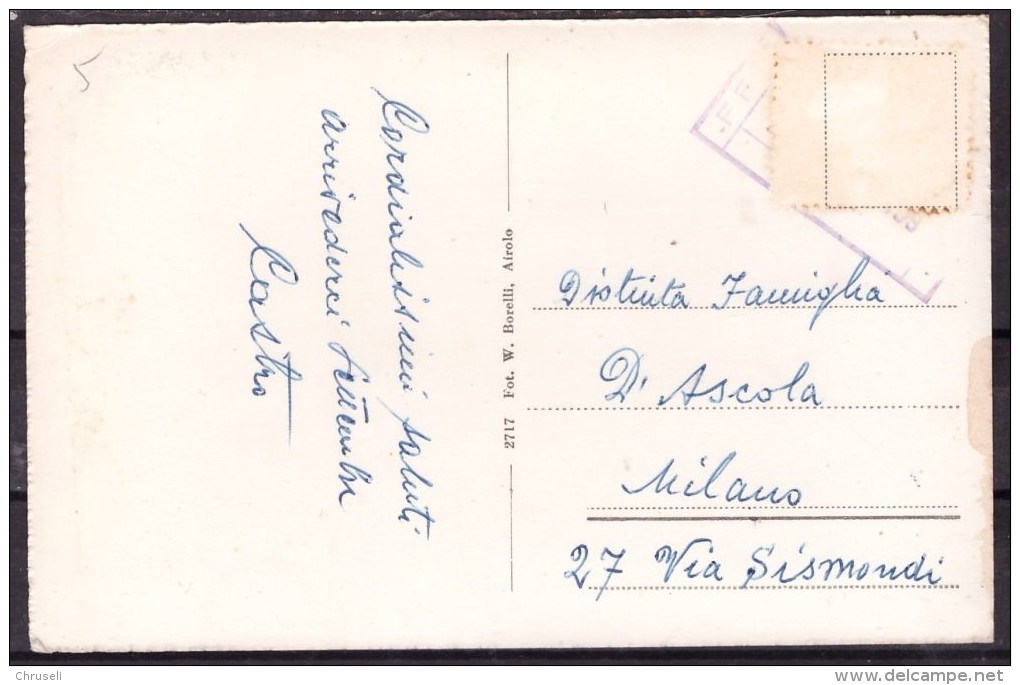 Cordialissimi saluti
arrivederci Settembre
Castro
2717 Fot. W. Borelli, Airolo
Distinta Famiglia
D'Ascola
Milano
27 Via Sismondi
Chruseli
www.delcampe.net